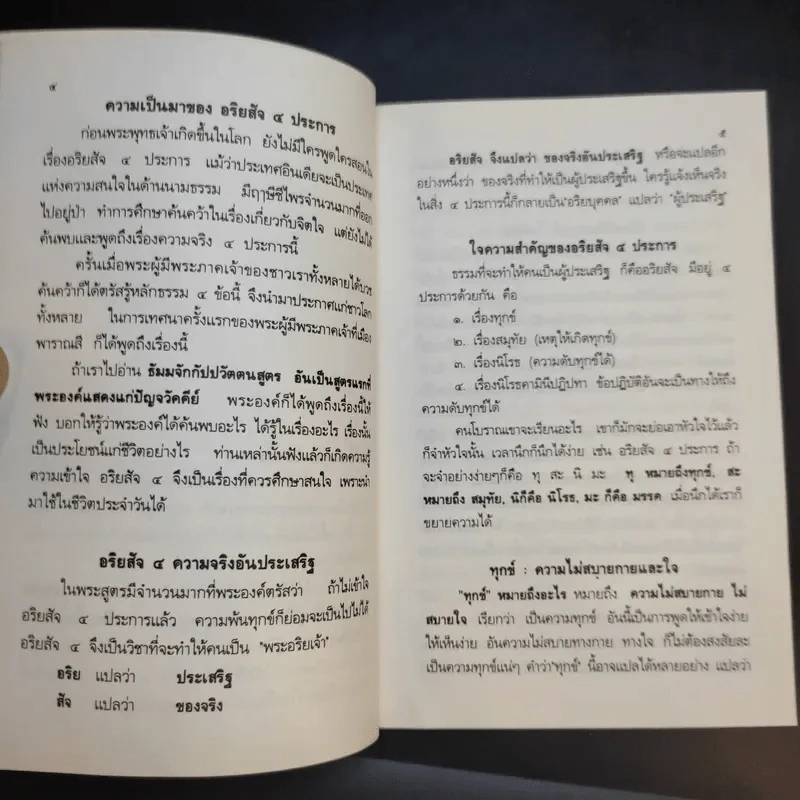 ๔
ความเป็นมาของ อริยสัจ ๔ ประการ
ก่อนพระพุทธเจ้าเกิดขึ้นในโลก ยังไม่มีใครพูดใครสอนใน
เรื่องอริยสัจ ๔ ประการ แม้ว่าประเทศอินเดียจะเป็นประเทศ
แห่งความสนใจในด้านนามธรรม มีฤาษีชีไพรจำนวนมากที่ออก
ไปอยู่ป่า ทำการศึกษาค้นคว้าในเรื่องเกี่ยวกับจิตใจ แต่ยังไม่ได้
ค้นพบและพูดถึงเรื่องความจริง ๔ ประการนี้
ครั้นเมื่อพระผู้มีพระภาคเจ้าของชาวเราทั้งหลายได้บวช
ค้นคว้าก็ได้ตรัสรู้หลักธรรม ๔ ข้อนี้ จึงนำมาประกาศแก่ชาวโลก
ทั้งหลาย ในการเทศนาครั้งแรกของพระผู้มีพระภาคเจ้าที่เมือง
พาราณสี ก็ได้พูดถึงเรื่องนี้
ถ้าเราไปอ่าน ธัมมจักกัปปวัตตนสูตร อันเป็นสูตรแรกที่
พระองค์แสดงแก่ปัญจวัคคีย์ พระองค์ก็ได้พูดถึงเรื่องนี้ให้
ฟัง บอกให้รู้ว่าพระองค์ได้ค้นพบอะไร ได้รู้ในเรื่องอะไร เรื่องนั้น
เป็นประโยชน์แก่ชีวิตอย่างไร ท่านเหล่านั้นฟังแล้วก็เกิดความรู้
ความเข้าใจ อริยสัจ ๔ จึงเป็นเรื่องที่ควรศึกษาสนใจ เพราะนำ
มาใช้ในชีวิตประจำวันได้
อริยสัจ ๔ ความจริงอันประเสริฐ
ในพระสูตรมีจำนวนมากที่พระองค์ตรัสว่า ถ้าไม่เข้าใจ
อริยสัจ ๔ ประการแล้ว ความพ้นทุกข์ก็ย่อมจะเป็นไปไม่ได้
อริยสัจ ๔ จึงเป็นวิชาที่จะทำให้คนเป็น "พระอริยเจ้า"
อริย แปลว่า ประเสริฐ
สัจ แปลว่า ของจริง
๕
อริยสัจ จึงแปลว่า ของจริงอันประเสริฐ หรือจะแปลอีก
อย่างหนึ่งว่า ของจริงที่ทำให้เป็นผู้ประเสริฐขึ้น ใครรู้แจ้งเห็นจริง
ในสิ่ง ๔ ประการนี้ก็กลายเป็น"อริยบุคคล" แปลว่า "ผู้ประเสริฐ"
ใจความสำคัญของอริยสัจ ๔ ประการ
ธรรมที่จะทำให้คนเป็นผู้ประเสริฐ ก็คืออริยสัจ มีอยู่ ๔
ประการด้วยกัน คือ
๑. เรื่องทุกข์
๒. เรื่องสมุทัย (เหตุให้เกิดทุกข์)
๓. เรื่องนิโรธ (ความดับทุกข์ได้)
๔. เรื่องนิโรธคามินีปฏิปทา ข้อปฏิบัติอันจะเป็นทางให้ถึง
ความดับทุกข์ได้
คนโบราณเขาจะเรียนอะไร เขาก็มักจะย่อเอาหัวใจไว้แล้ว
ก็จำหัวใจนั้น เวลานึกก็นึกได้ง่าย เช่น อริยสัจ ๔ ประการ ถ้า
จะจำอย่างง่ายๆก็คือ ทุ สะ นิ มะ ทุ หมายถึงทุกข์, สะ
หมายถึง สมุทัย, นิก็คือ นิโรธ, มะ ก็คือ มรรค เมื่อนึกได้เราก็
ขยายความได้
ทุกข์ : ความไม่สบายกายและใจ
"ทุกข์" หมายถึงอะไร หมายถึง ความไม่สบายกาย ไม่
สบายใจ เรียกว่า เป็นความทุกข์ อันนี้เป็นการพูดให้เข้าใจง่าย
ให้เห็นง่าย อันความไม่สบายทางกาย ทางใจ ก็ไม่ต้องสงสัยละ
เป็นความทุกข์แน่ๆ คำว่า"ทุกข์" นี้อาจแปลได้หลายอย่าง แปลว่า